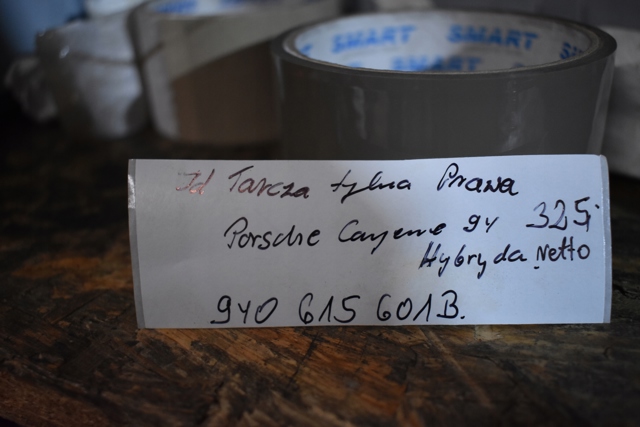 SMART SMART
Id Tarcza tylna Prawa
Porsche Cayenne 9Y 325,-
Hybryda Netto
9Y0 615 601B.